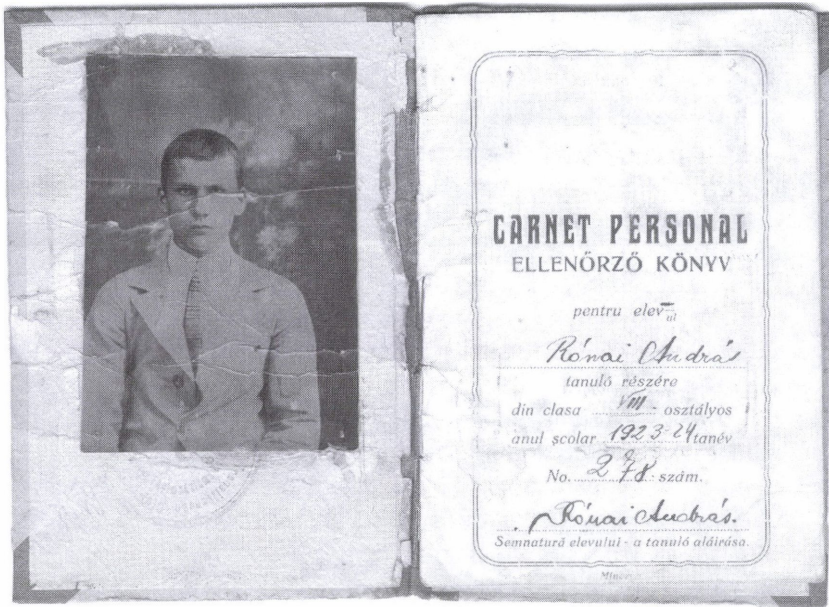 CARNET PERSONAL
ELLENŐRZŐ KÖNYV
pentru elevul
Rónai András
tanuló részére
din clasa VIII. osztályos
anul școlar 1923-24 tanév
No. 278 szám.
Rónai András.
Semnatură elevului - a tanuló aláirása.